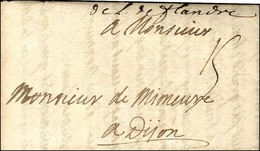 de L. de flandre
a Monsieur
15
Monsieur de Mimeure
a Dijon